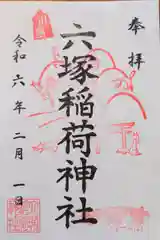 奉拝
六塚稲荷神社
令和六年二月一日